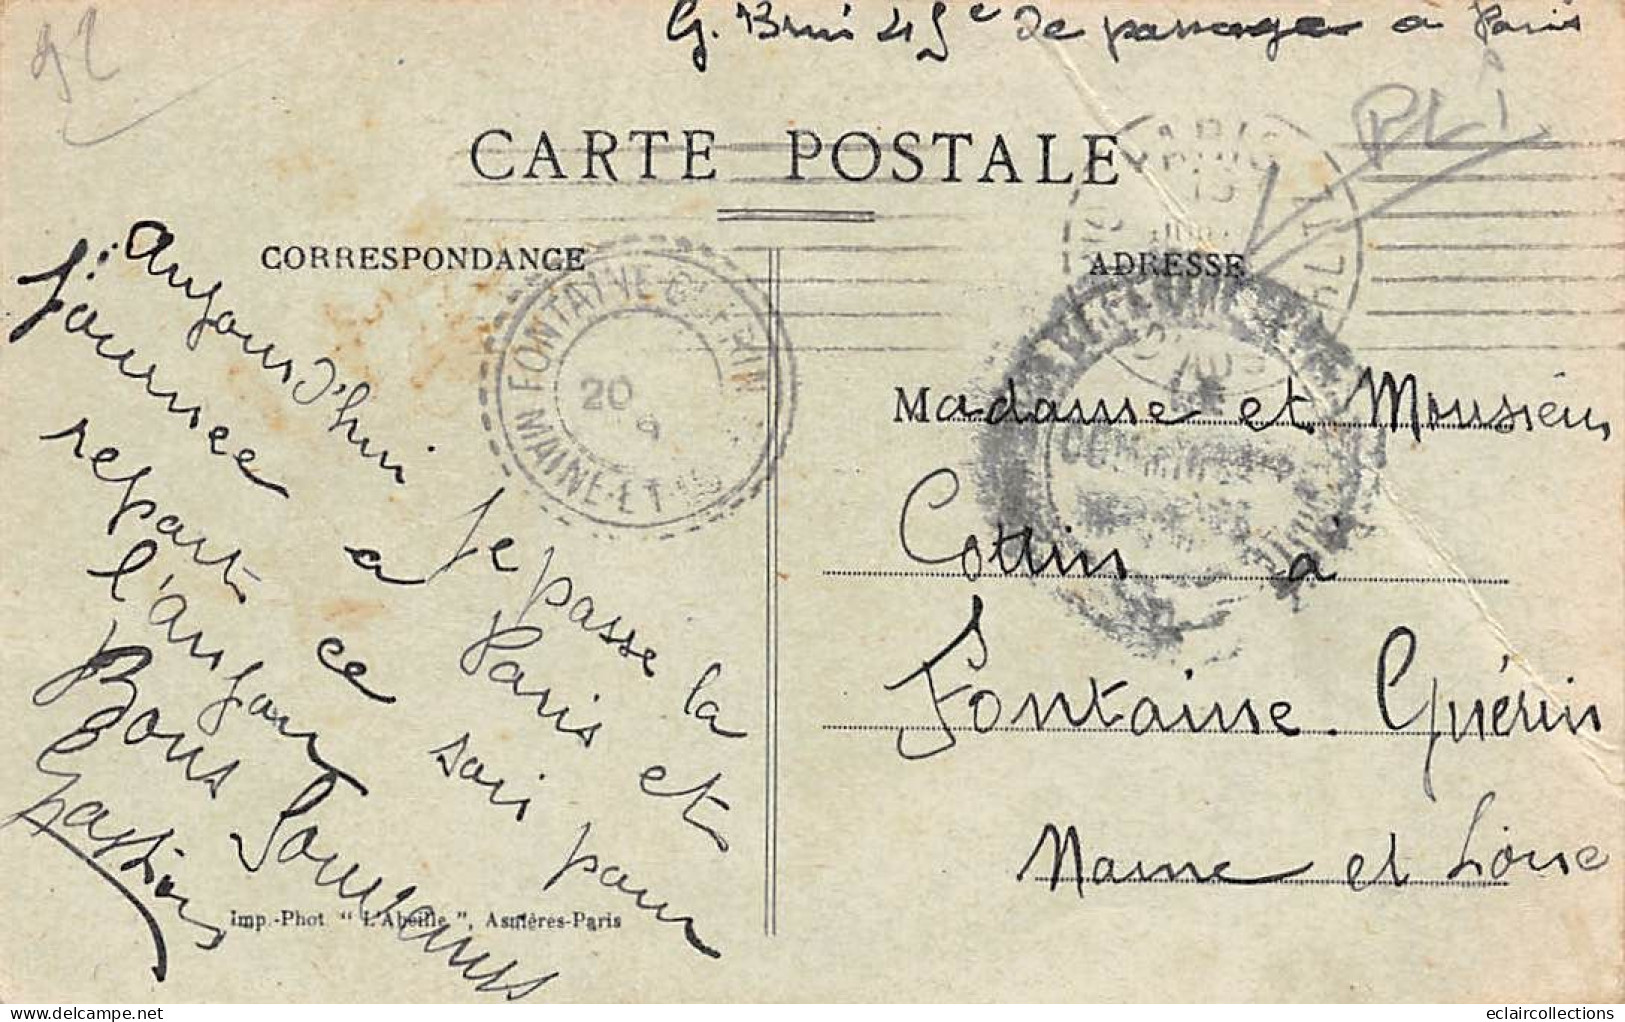 92
de passage a Paris
PLI
CARTE POSTALE
CORRESPONDANCE
ADRESSE
FONTAINE-GUERIN
20
9
MAINE-ET
PARIS
Aujourd'hui je passe la
journée a Paris et
repart ce soir pour
l'Anjou
Bons Souvenirs
Gaston
Madame et Monsieur
Cottin à
Fontaine-Guérin
Maine et Loire
Imp.-Phot " L'Abeille ", Asnières-Paris
eclaircollections